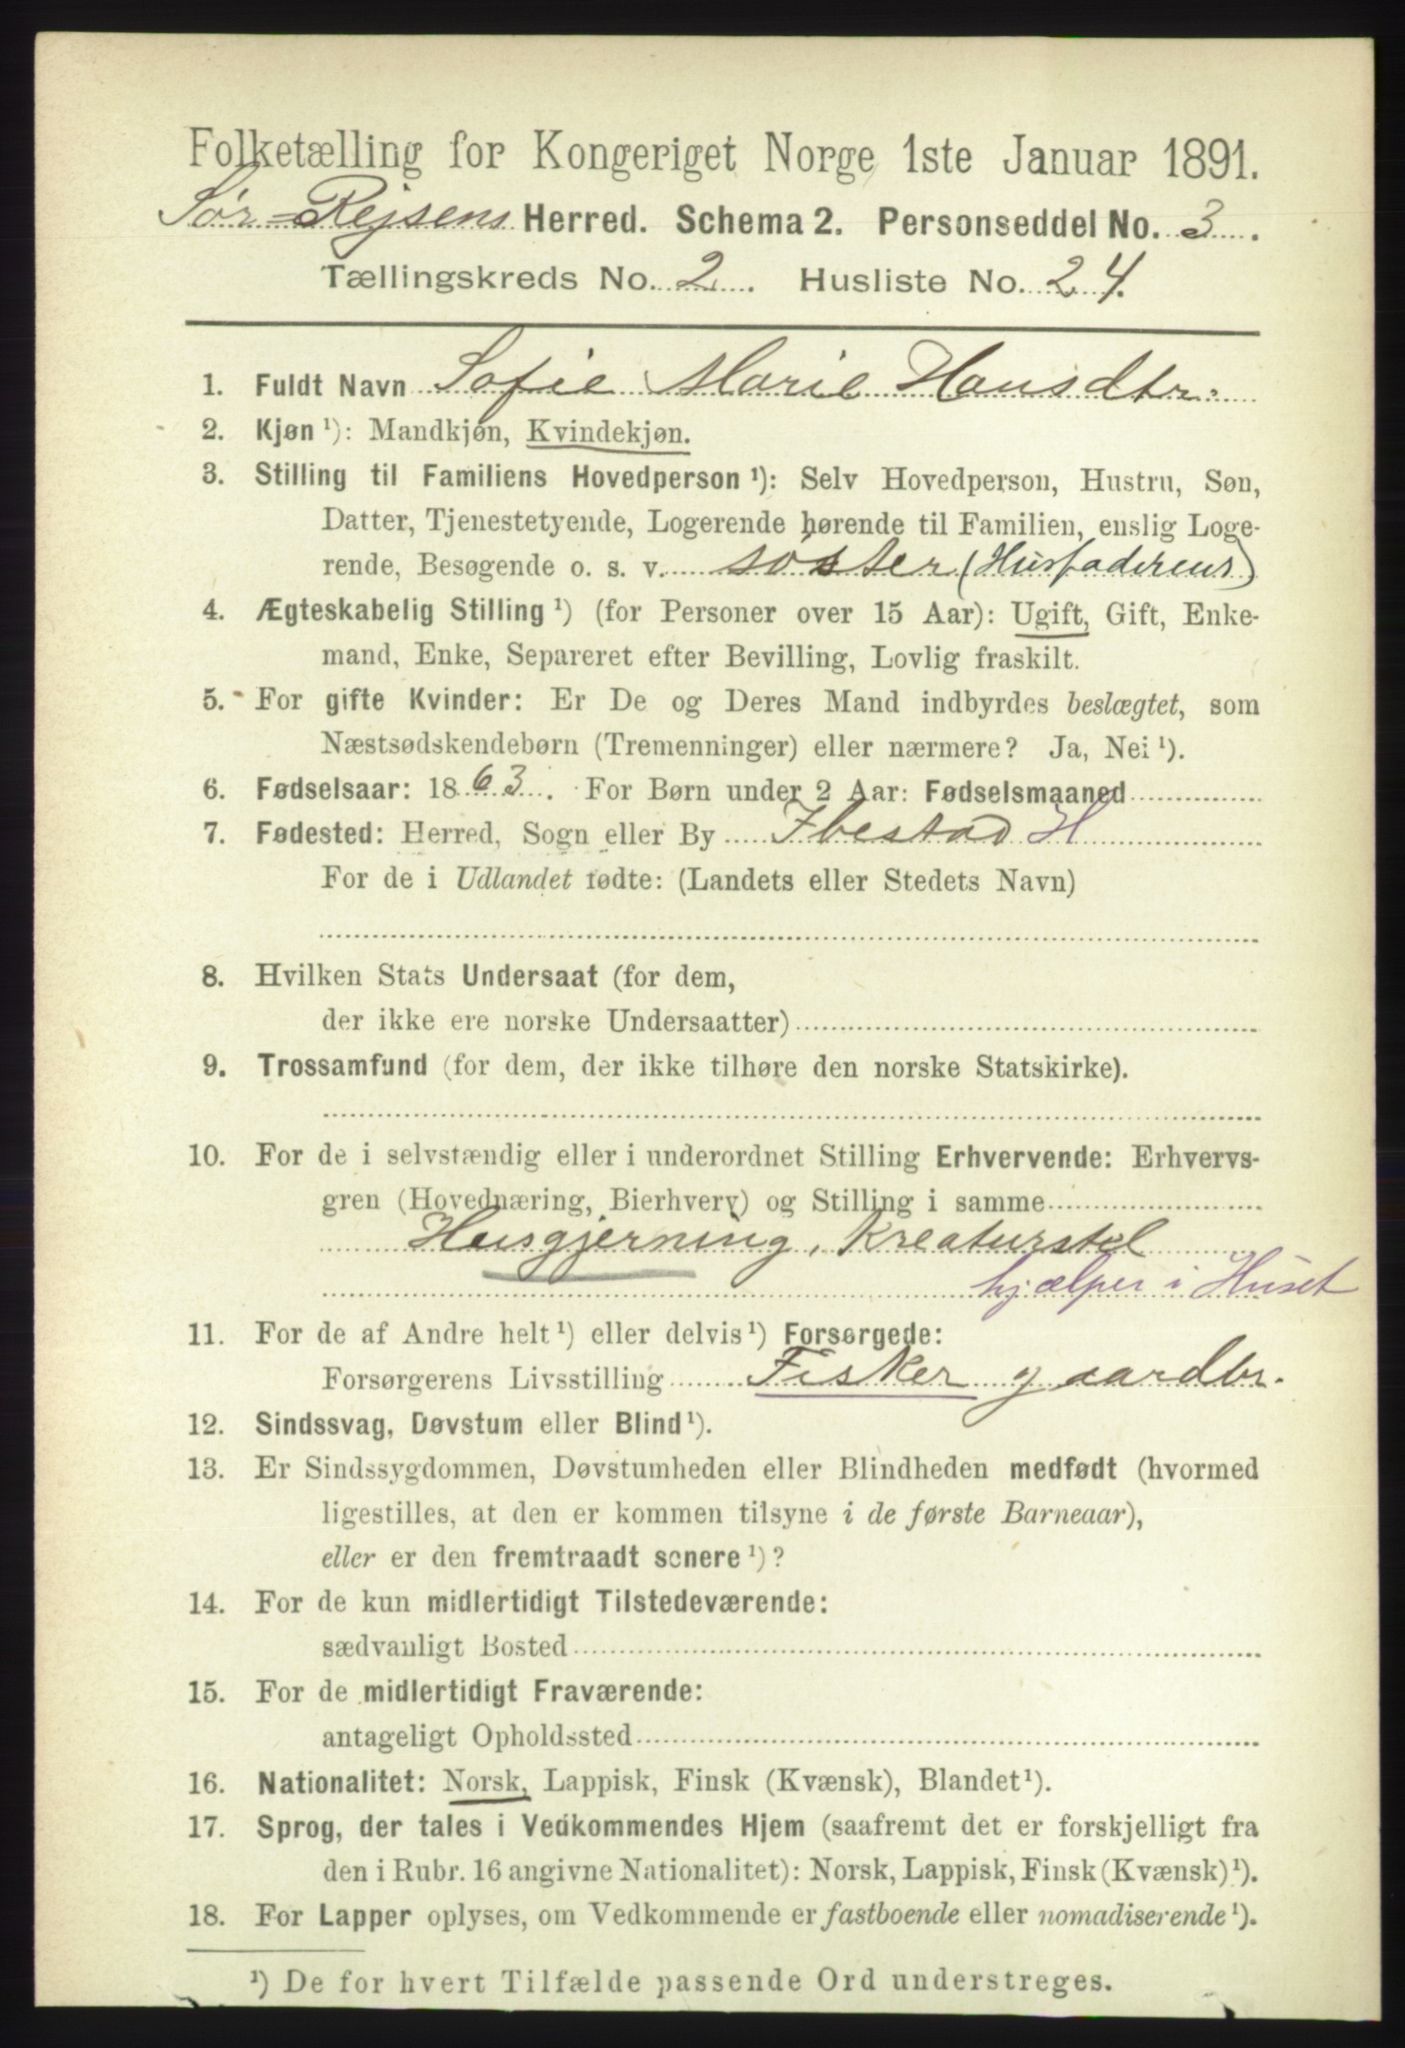 Folketælling for Kongeriget Norge 1ste Januar 1891.
Sør-Rejsens Herred. Schema 2. Personseddel No. 3.
Tællingskreds No. 2. Husliste No. 24.
1. Fuldt Navn Sofie Marie Hansdtr.
2. Kjøn ¹): Mandkjøn, Kvindekjøn.
3. Stilling til Familiens Hovedperson ¹): Selv Hovedperson, Hustru, Søn,
Datter, Tjenestetyende, Logerende hørende til Familien, enslig Loge-
rende, Besøgende o. s. v. søster (Husfaderens)
4. Ægteskabelig Stilling ¹) (for Personer over 15 Aar): Ugift, Gift, Enke-
mand, Enke, Separeret efter Bevilling, Lovlig fraskilt.
5. For gifte Kvinder: Er De og Deres Mand indbyrdes beslægtet, som
Næstsødskendebørn (Tremenninger) eller nærmere? Ja, Nei ¹).
6. Fødselsaar: 1863. For Børn under 2 Aar: Fødselsmaaned
7. Fødested: Herred, Sogn eller By Ibestad H
For de i Udlandet fødte: (Landets eller Stedets Navn)
8. Hvilken Stats Undersaat (for dem,
der ikke ere norske Undersaatter)
9. Trossamfund (for dem, der ikke tilhøre den norske Statskirke).
10. For de i selvstændig eller i underordnet Stilling Erhvervende: Erhvervs-
gren (Hovednæring, Bierhverv) og Stilling i samme
Husgjerning, Kreaturstel
hjælper i Huset
11. For de af Andre helt ¹) eller delvis ¹) Forsørgede:
Forsørgerens Livsstilling Fisker gaardbr.
12. Sindssvag, Døvstum eller Blind ¹).
13. Er Sindssygdommen, Døvstumheden eller Blindheden medfødt (hvormed
ligestilles, at den er kommen tilsyne i de første Barneaar),
eller er den fremtraadt senere ¹)?
14. For de kun midlertidigt Tilstedeværende:
sædvanligt Bosted
15. For de midlertidigt Fraværende:
antageligt Opholdssted
16. Nationalitet: Norsk, Lappisk, Finsk (Kvænsk), Blandet ¹).
17. Sprog, der tales i Vedkommendes Hjem (saafremt det er forskjelligt fra
den i Rubr. 16 angivne Nationalitet): Norsk, Lappisk, Finsk (Kvænsk) ¹).
18. For Lapper oplyses, om Vedkommende er fastboende eller nomadiserende ¹).
¹) De for hvert Tilfælde passende Ord understreges.